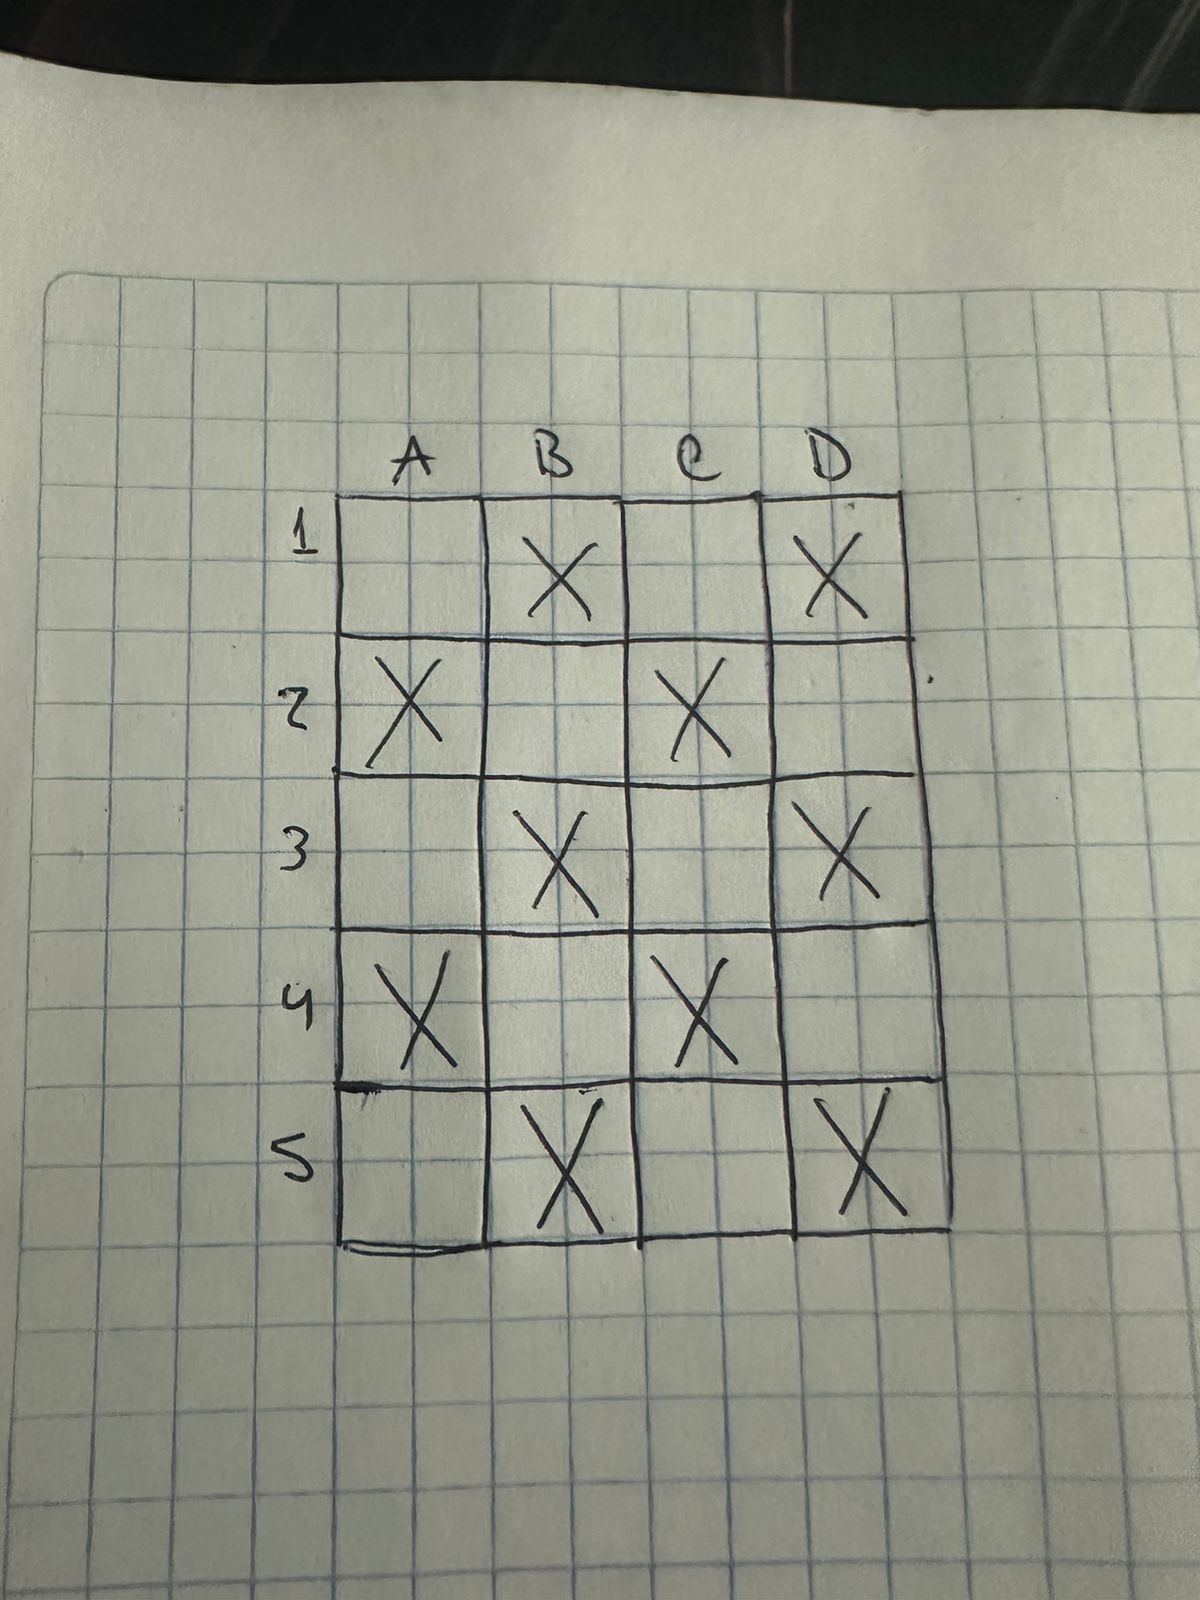 A B C D
1 X X
2 X X
3 X X
4 X X
5 X X